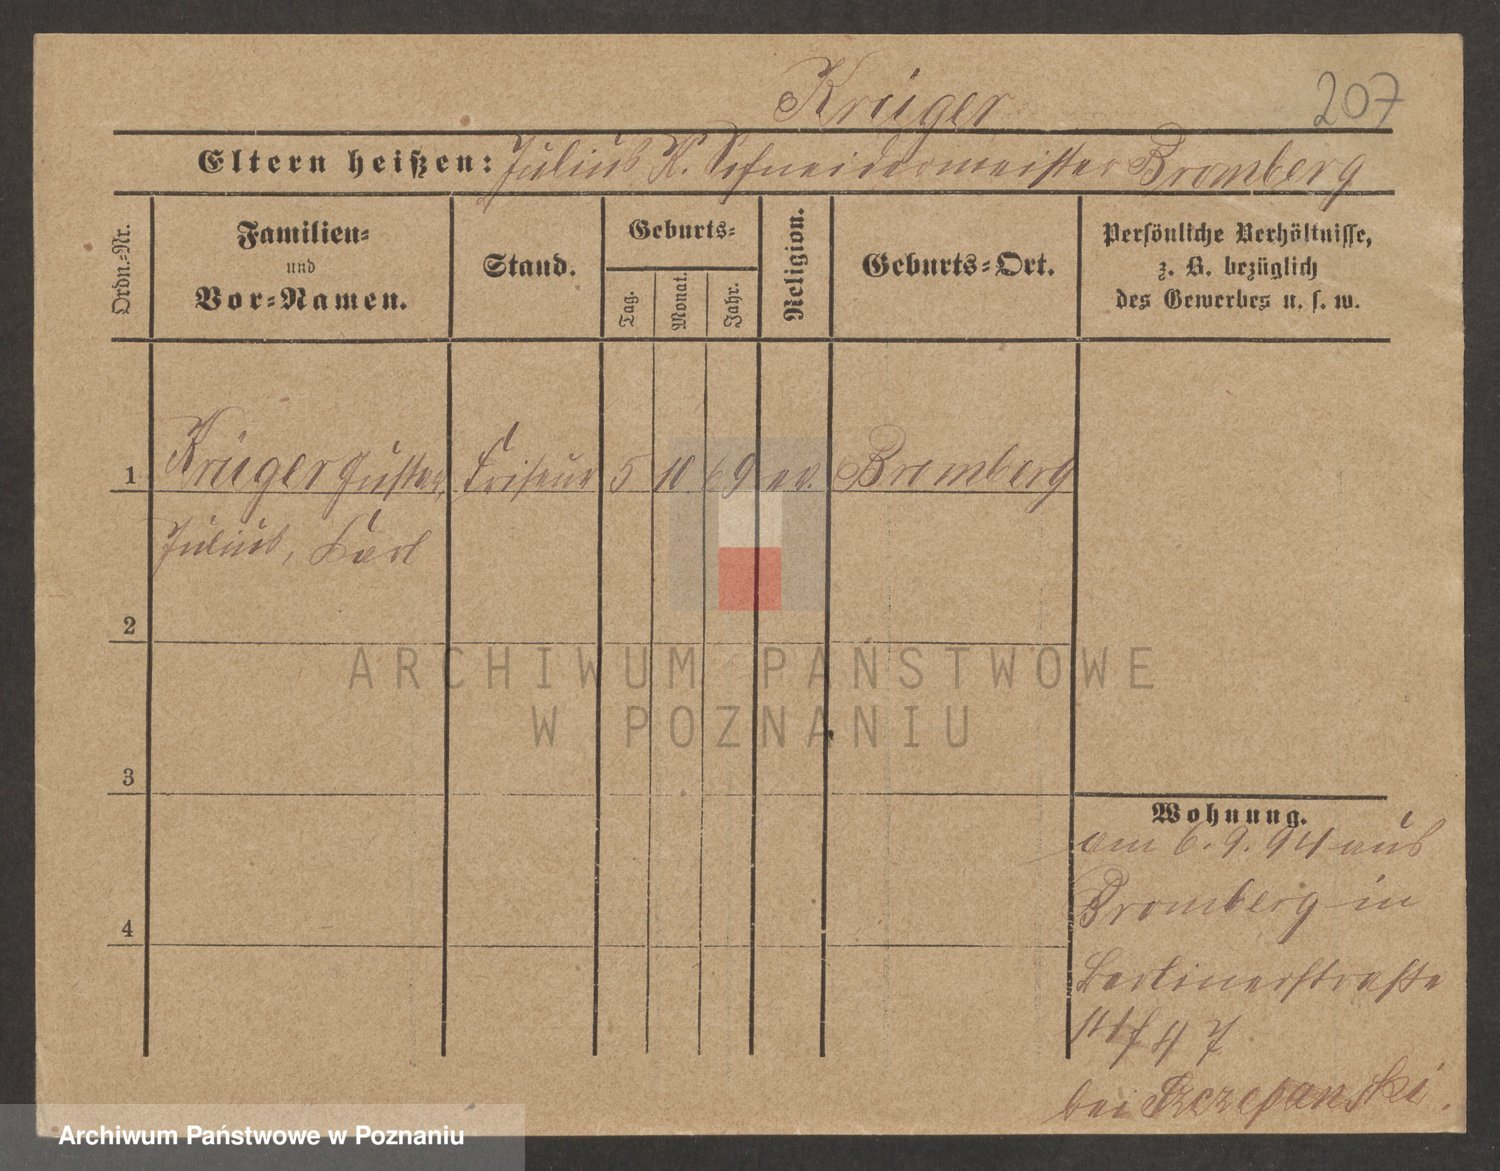 Krüger
207
Eltern heißen: Julius K. Schneidermeister Bromberg
Ordn.-Nr.
Familien- und Vor-Namen.
Stand.
Geburts-
Tag.
Monat.
Jahr.
Religion.
Geburts-Ort.
Persönliche Verhältnisse,
z. B. bezüglich
des Gewerbes u. s. w.
1 Krüger Gustav, Friseur 5 10 69 ev. Bromberg
Julius, Carl
2
3
4
Wohnung.
am 6.9.94 aus
Bromberg in
Berlinerstraße
bei Szczepanski.
ARCHIWUM PAŃSTWOWE
W POZNANIU
Archiwum Państwowe w Poznaniu